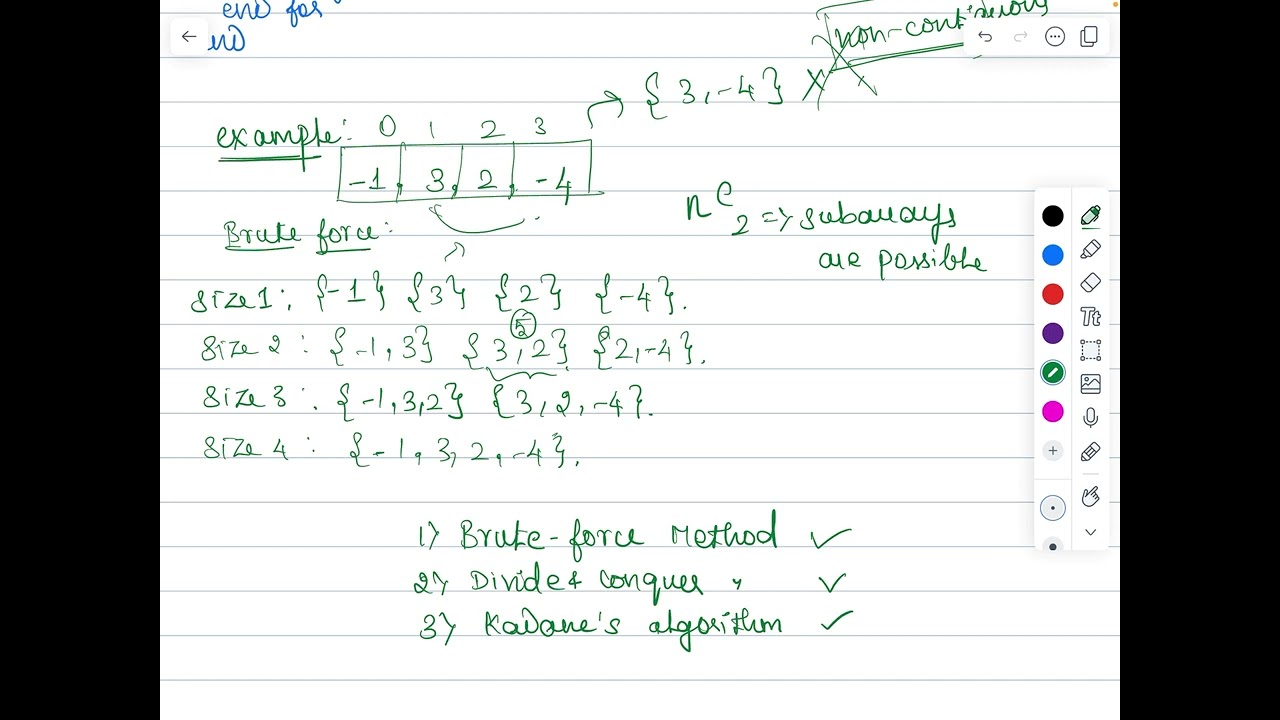 end for
end
non-continuous
{3, -4} X
example: 0 1 2 3
-1, 3, 2, -4
nC2 => subarrays
are possible
Brute force:
size 1: {-1} {3} {2} {-4}.
5
size 2: {-1, 3} {3, 2} {2, -4}.
size 3: {-1, 3, 2} {3, 2, -4}.
size 4: {-1, 3, 2, -4}.
1) Brute-force Method ✓
2) Divide & conquer " ✓
3) Kadane's algorithm ✓
Tt